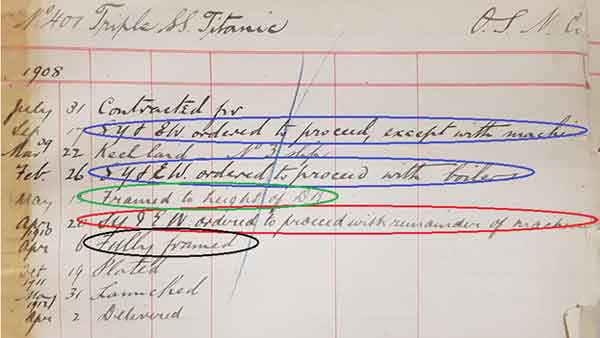 No 401 Triple SS. Titanic O. S. N. Co
1908
July 31 Contracted for
Sep 17 S.Y & E.W. ordered to proceed, except with machi
09
Mar 22 Keel laid No 3 slip
Feb 26 S.Y & E.W. ordered to proceed with boilers
May Framed to height of D.B
Apr 20 S.Y & E.W ordered to proceed with remainder of machine
1910
Apr 6 Fully framed
Oct 19 Plated
1911
May 31 Launched
1912
Apr 2 Delivered